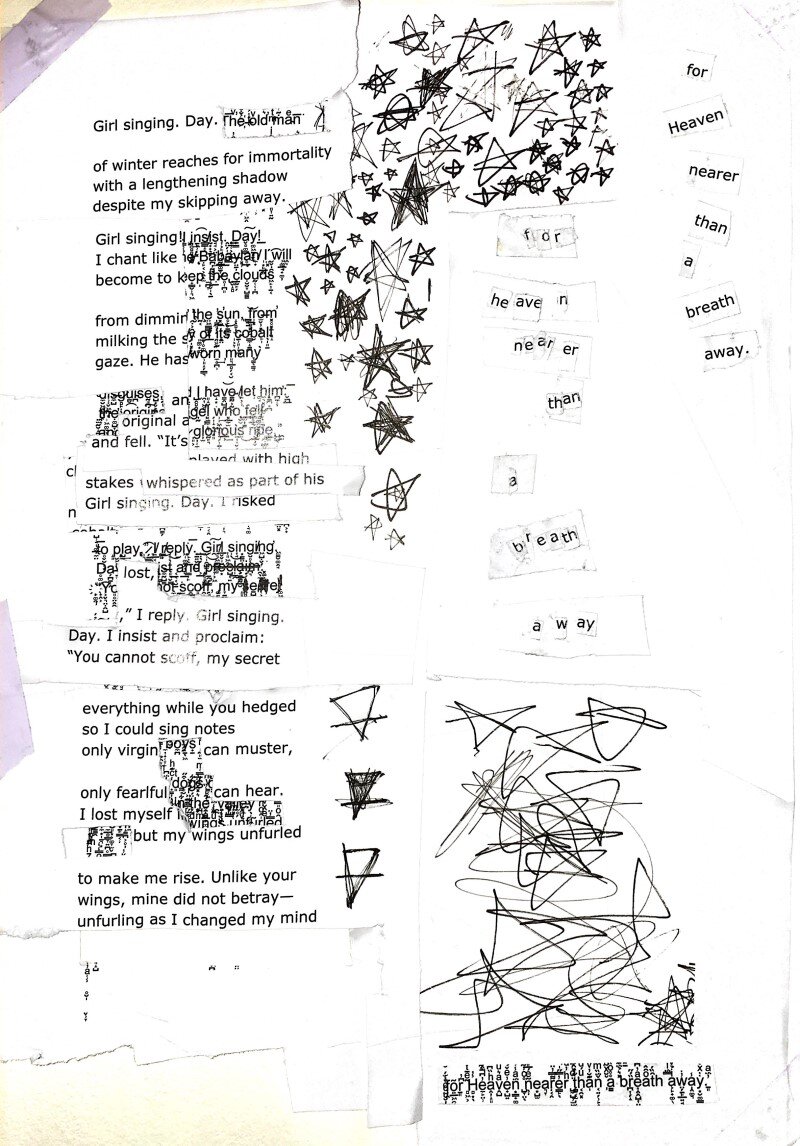 Girl singing. Day. The old man
of winter reaches for immortality
with a lengthening shadow
despite my skipping away.
Girl singing! I insist. Day!
I chant like he Babaylan I will
become to kep the clouds
from dimmin the sun, from
milking the s y of its cobalt
gaze. He has worn many
disguises, an I have let him
the original a del who fell
and fell. “It’s glorious ripe
played with high
stakes whispered as part of his
Girl singing. Day. I risked
to play,” I reply. Girl singing.
Da lost, ist and proclaim
not scoff, my secret
,” I reply. Girl singing.
Day. I insist and proclaim:
“You cannot scoff, my secret
everything while you hedged
so I could sing notes
only virgin boys can muster,
only fearful dogs can hear.
I lost myself in the valley
wings unfurled
but my wings unfurled
to make me rise. Unlike your
wings, mine did not betray—
unfurling as I changed my mind
for
heaven
nearer
than
a
breath
away
for
Heaven
nearer
than
a
breath
away.
for Heaven nearer than a breath away.